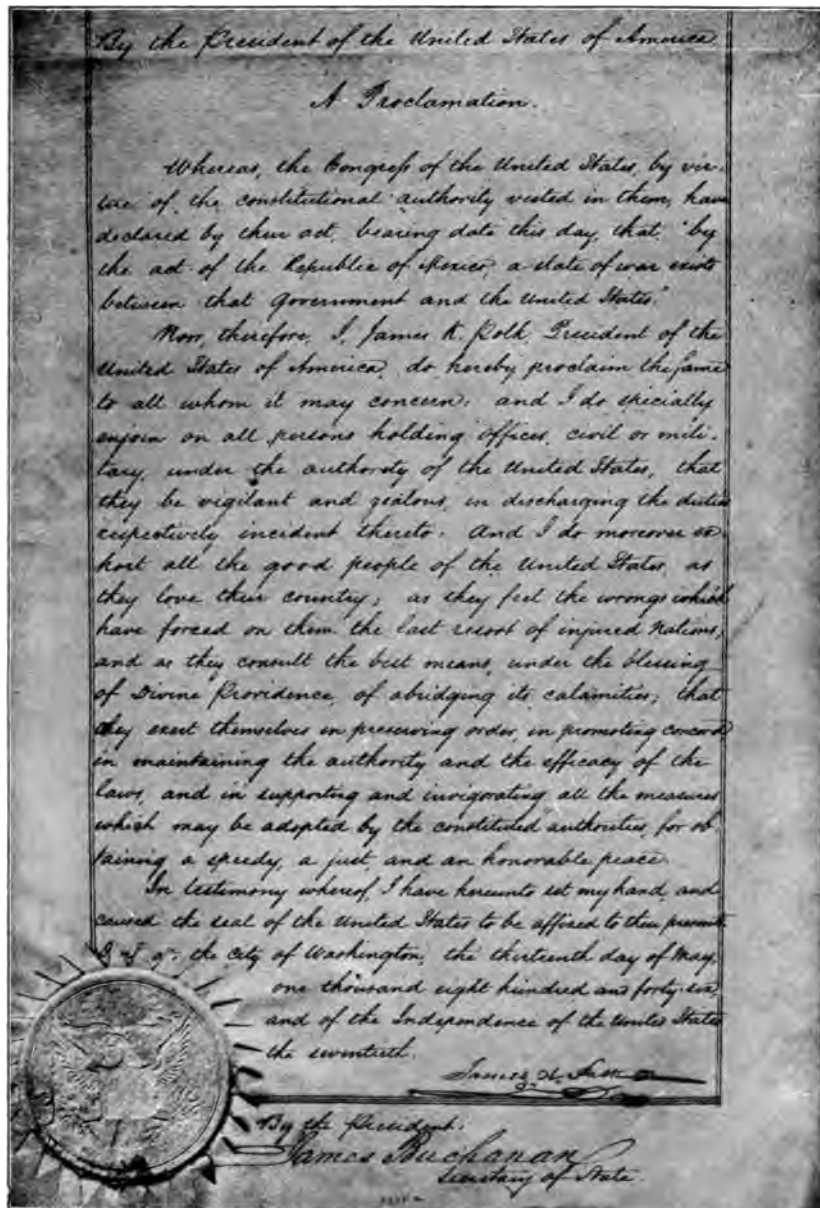 By the President of the United States of America
A Proclamation.
Whereas, the Congress of the United States, by vir-
tue of the constitutional authority vested in them, have
declared by their act, bearing date this day, that, "by
the act of the Republic of Mexico, a state of war exists
between that Government and the United States."
Now, therefore, I, James K. Polk, President of the
United States of America, do hereby proclaim the same
to all whom it may concern: and I do specially
enjoin on all persons holding offices, civil or mili-
tary, under the authority of the United States, that
they be vigilant and zealous, in discharging the duties
respectively incident thereto: And I do moreover ex-
hort all the good people of the United States, as
they love their country; as they feel the wrongs which
have forced on them the last resort of injured Nations;
and as they consult the best means, under the blessing
of Divine Providence, of abridging its calamities; that
they exert themselves in preserving order, in promoting concord,
in maintaining the authority and the efficacy of the
laws, and in supporting and invigorating all the measures
which may be adopted by the constituted authorities, for ob-
taining a speedy, a just, and an honorable peace.
In testimony whereof, I have hereunto set my hand, and
caused the seal of the United States to be affixed to these presents.
the City of Washington, the thirteenth day of May,
one thousand eight hundred and forty-six,
and of the Independence of the United States
the seventieth.
James K. Polk
By the President:
James Buchanan
Secretary of State.